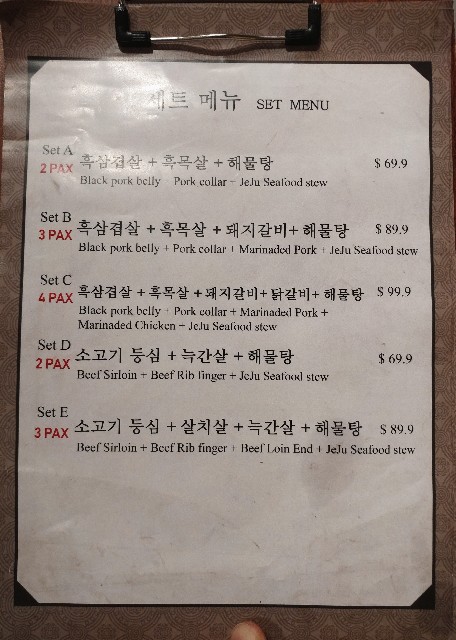 세트 메뉴 SET MENU
Set A
2 PAX 흑삼겹살 + 흑목살 + 해물탕 $ 69.9
Black pork belly + Pork collar + JeJu Seafood stew
Set B
3 PAX 흑삼겹살 + 흑목살 + 돼지갈비+ 해물탕 $ 89.9
Black pork belly + Pork collar + Marinaded Pork + JeJu Seafood stew
Set C
4 PAX 흑삼겹살 + 흑목살 + 돼지갈비+ 닭갈비+ 해물탕 $ 99.9
Black pork belly + Pork collar + Marinaded Pork +
Marinaded Chicken + JeJu Seafood stew
Set D
2 PAX 소고기 등심 + 늑간살 + 해물탕 $ 69.9
Beef Sirloin + Beef Rib finger + JeJu Seafood stew
Set E
3 PAX 소고기 등심 + 살치살 + 늑간살 + 해물탕 $ 89.9
Beef Sirloin + Beef Rib finger + Beef Loin End + JeJu Seafood stew